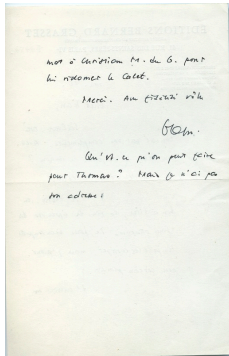 mot à Christian M. du G. pour
lui redonner le Colet.
Merci.
Qu'est-ce qu'on peut faire
pour Thomas ? Mais je n'ai pas
son adresse